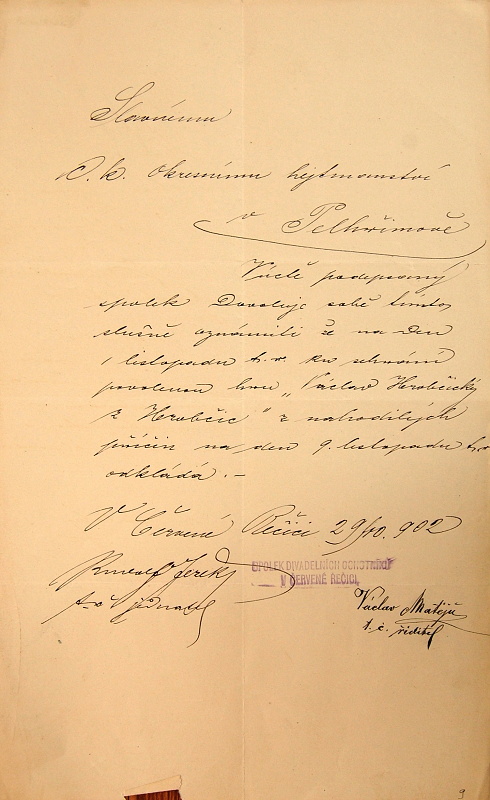 Slavnému
c. k. okresnímu hejtmanství
v Pelhřimově
Úctě podepsaný
spolek dovoluje sobě tímto
slušně oznámiti že na den
1 listopadu t. r. ku sehrání
povolenou hru „Václav Hrobčický
z Hrobčic" z nahodilých
příčin na den 9. listopadu t. r.
odkládá. –
V Červené Řečici 29/10. 902
SPOLEK DIVADELNÍCH OCHOTNÍKŮ
V ČERVENÉ ŘEČICI,
Rudolf
t. č. jednatel
Václav Matějů
t. č. ředitel
9